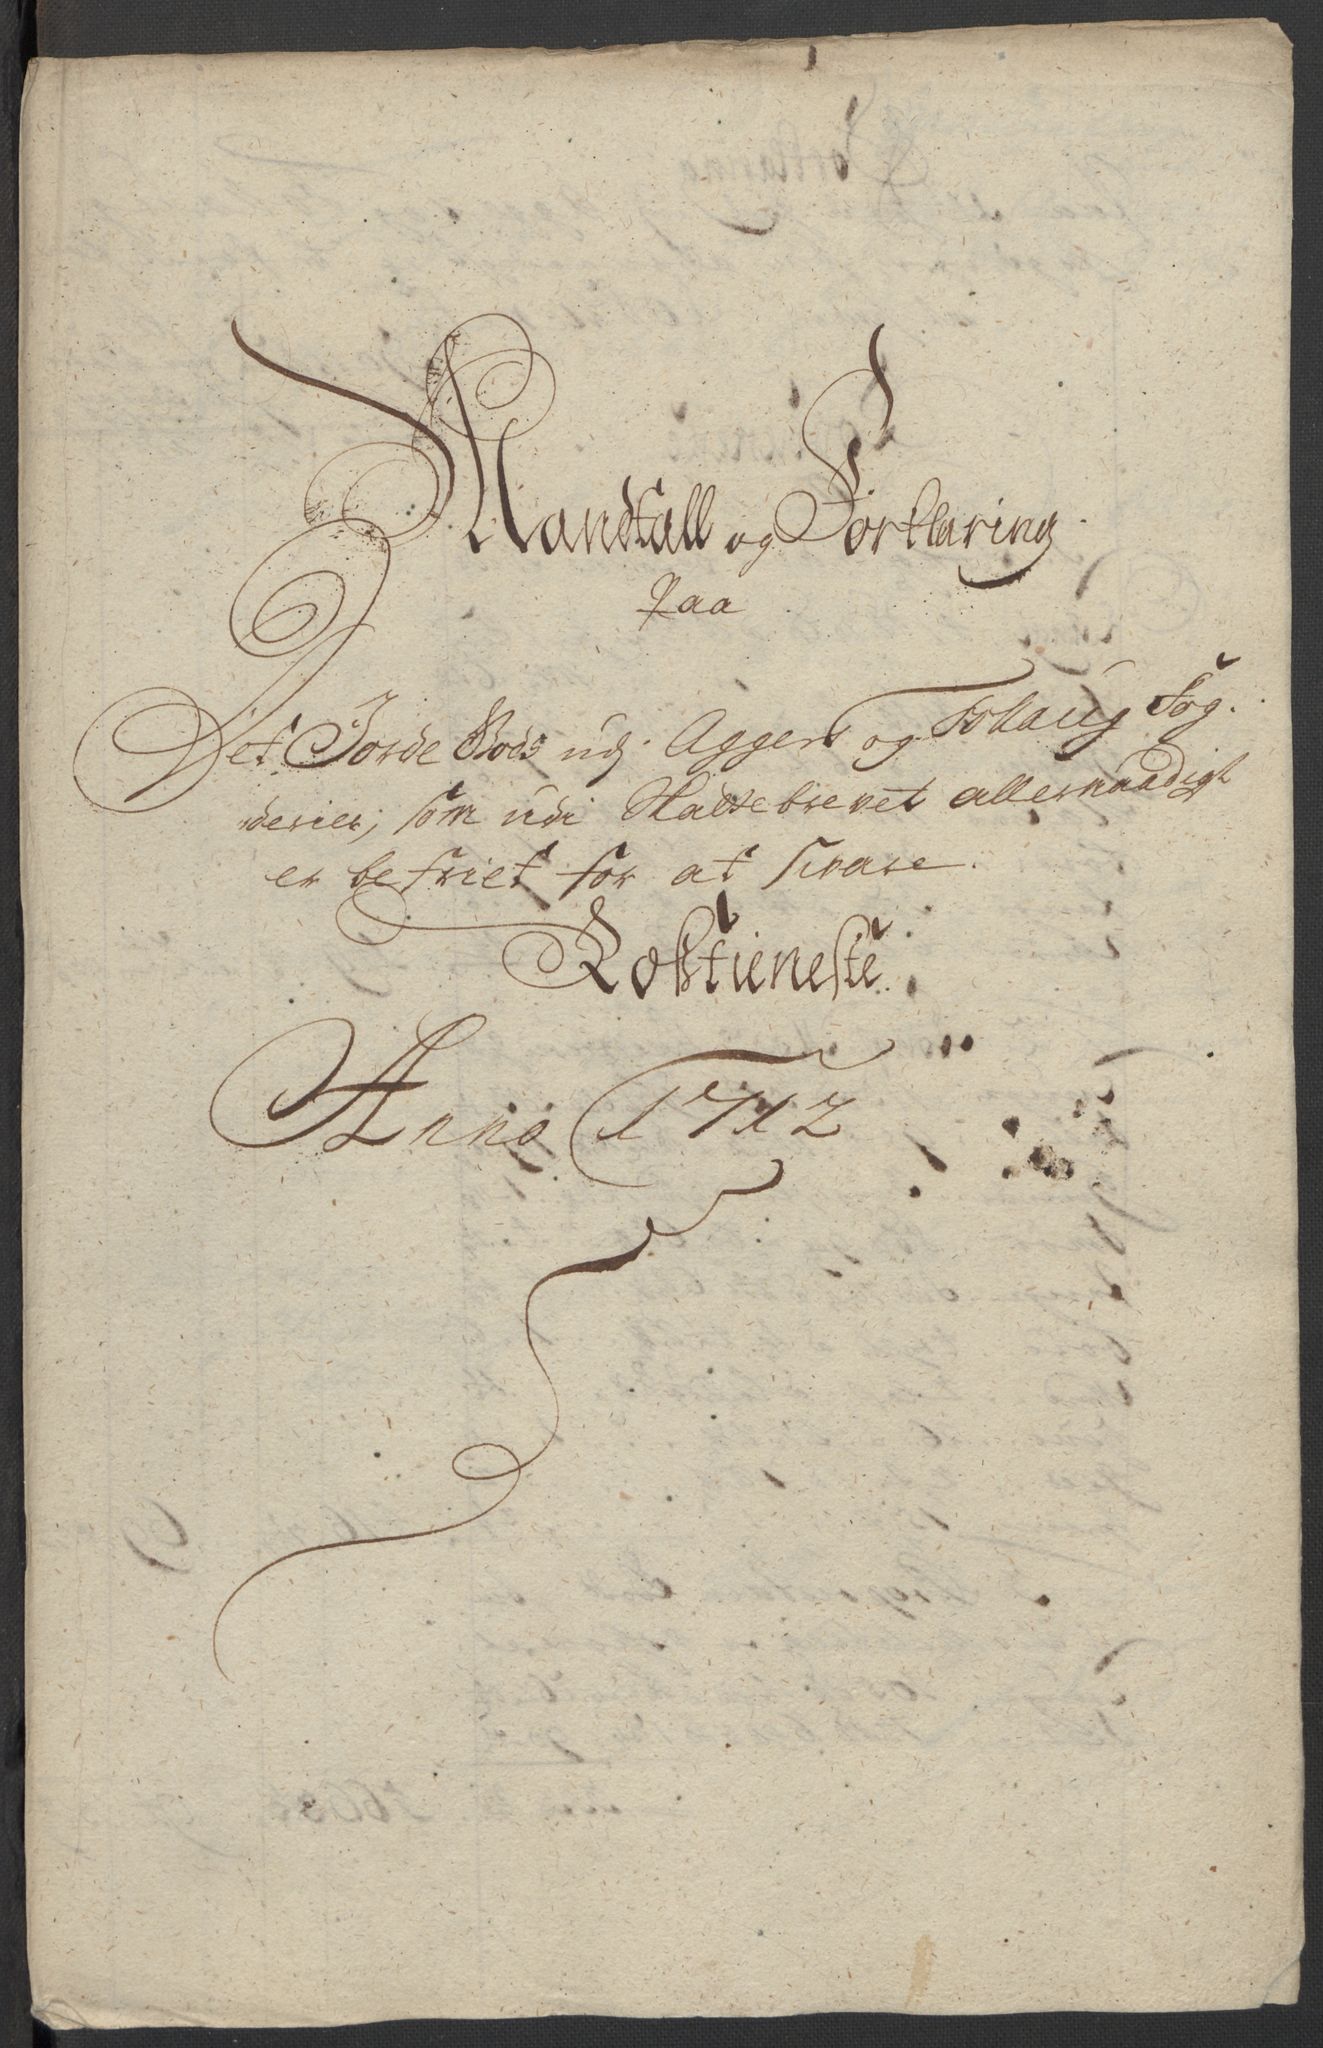 Mandtall og Forklaring
Paa
Det Jorde Gods udj Aggers og Follaug Fog-
derier, som udi Skattebrevet allernaadigst
er befriet for at svare
Rostieneste
Anno 1712